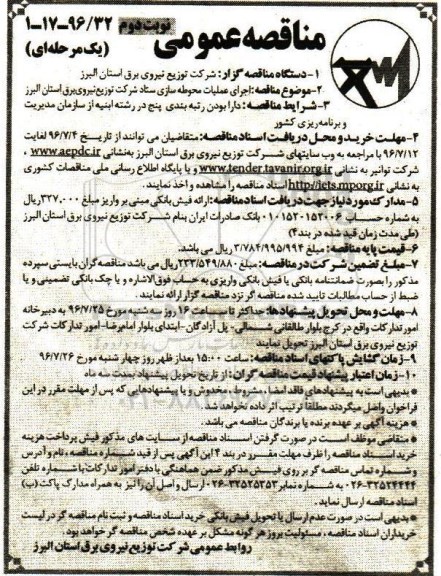 مناقصه عمومی
نوبت دوم
۹۶/۳۲-۱۷-۱
(یک مرحله‌ای)
۱- دستگاه مناقصه گزار: شرکت توزیع نیروی برق استان البرز
۲- موضوع مناقصه: اجرای عملیات محوطه سازی ستاد شرکت توزیع نیروی برق استان البرز
۳- شرایط مناقصه: دارا بودن رتبه بندی پنج در رشته ابنیه از سازمان مدیریت
و برنامه‌ریزی کشور
۴- مهلت خرید و محل دریافت اسناد مناقصه: متقاضیان می توانند از تاریخ ۹۶/۷/۴ لغایت
۹۶/۷/۱۲ با مراجعه به وب سایتهای شرکت توزیع نیروی برق استان البرز به‌نشانی www.aepdc.ir ،
شرکت توانیر به نشانی www.tender.tavanir.org.ir و یا پایگاه اطلاع رسانی ملی مناقصات کشوری
به نشانی http://iets.mporg.ir اسناد مناقصه را مشاهده و اخذ نمایند.
۵- مدارک مورد نیاز جهت دریافت اسناد مناقصه: ارائه فیش بانکی مبنی بر واریز مبلغ ۳۲۷,۰۰۰ ریال
به شماره حساب بانک صادرات ایران بنام شرکت توزیع نیروی برق استان البرز
(طی مدت زمان قید شده در بند ۴)
۶- قیمت پایه مناقصه: مبلغ ۳/۷۸۴/۹۹۵/۹۹۴ ریال می باشد.
۷- مبلغ تضمین شرکت در مناقصه: مبلغ ۲۳۳/۵۴۹/۸۸۰ ریال می باشد مناقصه گران بایستی سپرده
مذکور را بصورت ضمانتنامه بانکی یا فیش بانکی واریزی به حساب فوق‌الاشاره و یا چک بانکی تضمینی و یا
ضبط از حساب مطالبات تایید شده مناقصه گر نزد مناقصه گزار ارائه نمایند.
۸- مهلت و محل تحویل پیشنهادها: حداکثر تا ساعت ۱۶ روز سه شنبه مورخ ۹۶/۷/۲۵ به دبیرخانه
امور تدارکات واقع در کرج بلوار طالقانی شمالی- پل آزادگان- ابتدای بلوار امام رضا- امور تدارکات شرکت
توزیع نیروی برق استان البرز تحویل نمایند
۹- زمان گشایش پاکتهای اسناد مناقصه: ساعت ۱۵:۰۰ بعداز ظهر روز چهار شنبه مورخ ۹۶/۷/۲۶
۱۰- زمان اعتبار پیشنهاد قیمت مناقصه گران: از تاریخ تحویل پیشنهاد بمدت سه ماه
* بدیهی است به پیشنهادهای فاقد امضا، مشروط، مخدوش و یا پیشنهادهایی که پس از مهلت مقرر در این
فراخوان واصل میگردند مطلقا ترتیب اثر داده نخواهد شد.
* هزینه آگهی بر عهده برنده یا برندگان مناقصه می باشد.
* متقاضی موظف است در صورت گرفتن اسناد مناقصه از سایت های مذکور فیش پرداخت هزینه
خرید اسناد مناقصه را ظرف مهلت مقرر در بند ۴ این آگهی پس از قید شماره مناقصه، نام و آدرس
و شماره تماس مناقصه گر بر روی فیش مذکور ضمن هماهنگی با دفتر امور تدارکات با شماره تلفن
به شماره نمابر ۳۲۵۲۵۳۵۳-۰۲۶ ارسال و اصل آن را نیز به همراه مدارک پاکت (ب)
اسناد مناقصه ارسال نماید.
* بدیهی است در صورت عدم ارسال یا تحویل فیش بانکی خرید اسناد مناقصه و ثبت نام مناقصه گر در لیست
خریداران اسناد مناقصه، مسئولیت بروز هر گونه مشکل بر عهده شخص مناقصه گر خواهد بود.
روابط عمومی شرکت توزیع نیروی برق استان البرز